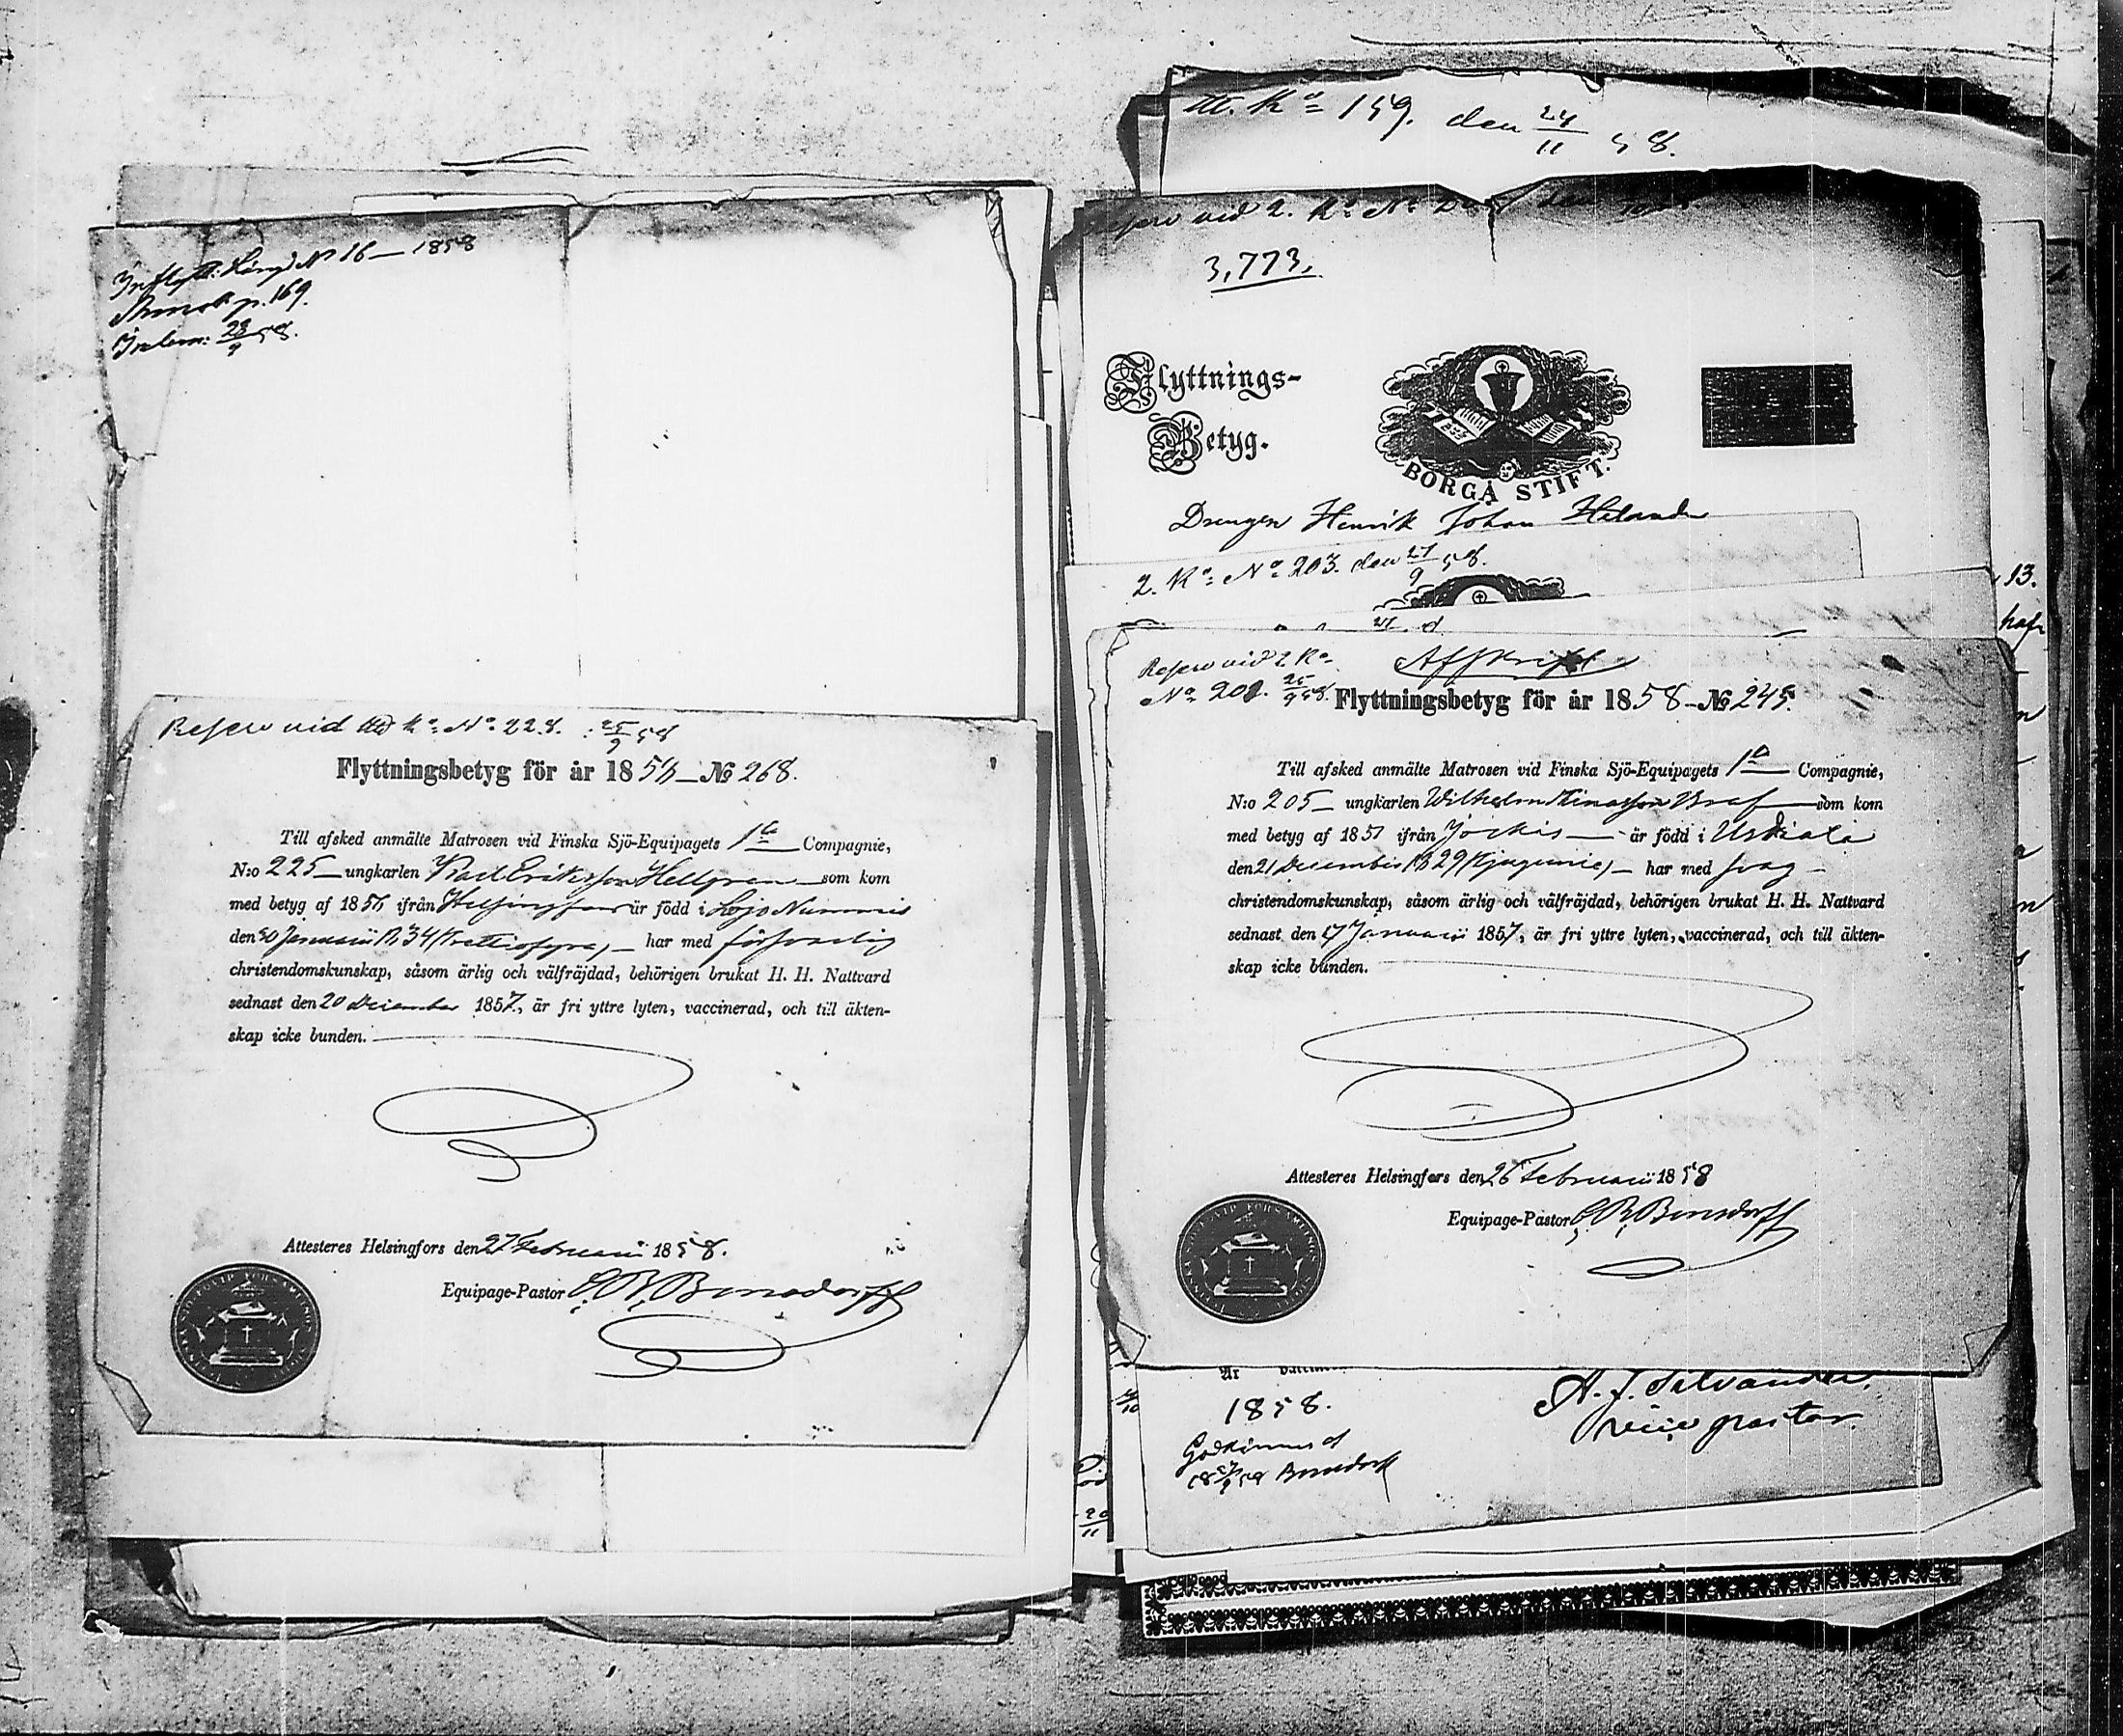 Inflytt: Längd No 16 — 1858
p. 169.
Inlem: 28/9 58.
Reserv vid K: No 228. 25/9 58
Flyttningsbetyg för år 1858 — № 268.
Till afsked anmälte Matrosen vid Finska Sjö-Equipagets 1a Compagnie,
N:o 225 — ungkarlen Karl Eriksson Hellgren — som kom
med betyg af 185 ifrån Helsingfors är född i Lojo Nummis
den 30 Januarii 1834 (Trettiofyra) — har med försvarlig
christendomskunskap, såsom ärlig och välfräjdad, behörigen brukat H. H. Nattvard
sednast den 20 December 1857, är fri yttre lyten, vaccinerad, och till äkten-
skap icke bunden.
Attesteres Helsingfors den 27 Februarii 1858.
Equipage-Pastor C. R. Bonsdorff
No 159. den 24/11 58.
vid 2. Ko No den
3,773,
Flyttnings-
Betyg.
BORGÅ STIFT.
Drengen Henrik Johan Helander
2. Ko: No 203. den 27/9 58.
Reserv vid 2 Ko
No 58.
Afskrift
Flyttningsbetyg för år 1858 — № 245.
Till afsked anmälte Matrosen vid Finska Sjö-Equipagets 1a — Compagnie,
N:o 205 — ungkarlen Wilhelm — som kom
med betyg af 1857 ifrån Jockis — är född i Urdiala
den 21 December 1829 (tjugunie) — har med svag —
christendomskunskap, såsom ärlig och välfräjdad, behörigen brukat H. H. Nattvard
sednast den 17 Januarii 1857, är fri yttre lyten, vaccinerad, och till äkten-
skap icke bunden.
Attesteres Helsingfors den 26 Februarii 1858
Equipage-Pastor C. R. Bonsdorff
År
1858.
A. J. Silvander.
vice pastor.
Godkännes af
Bonsdorff
20/11
13.